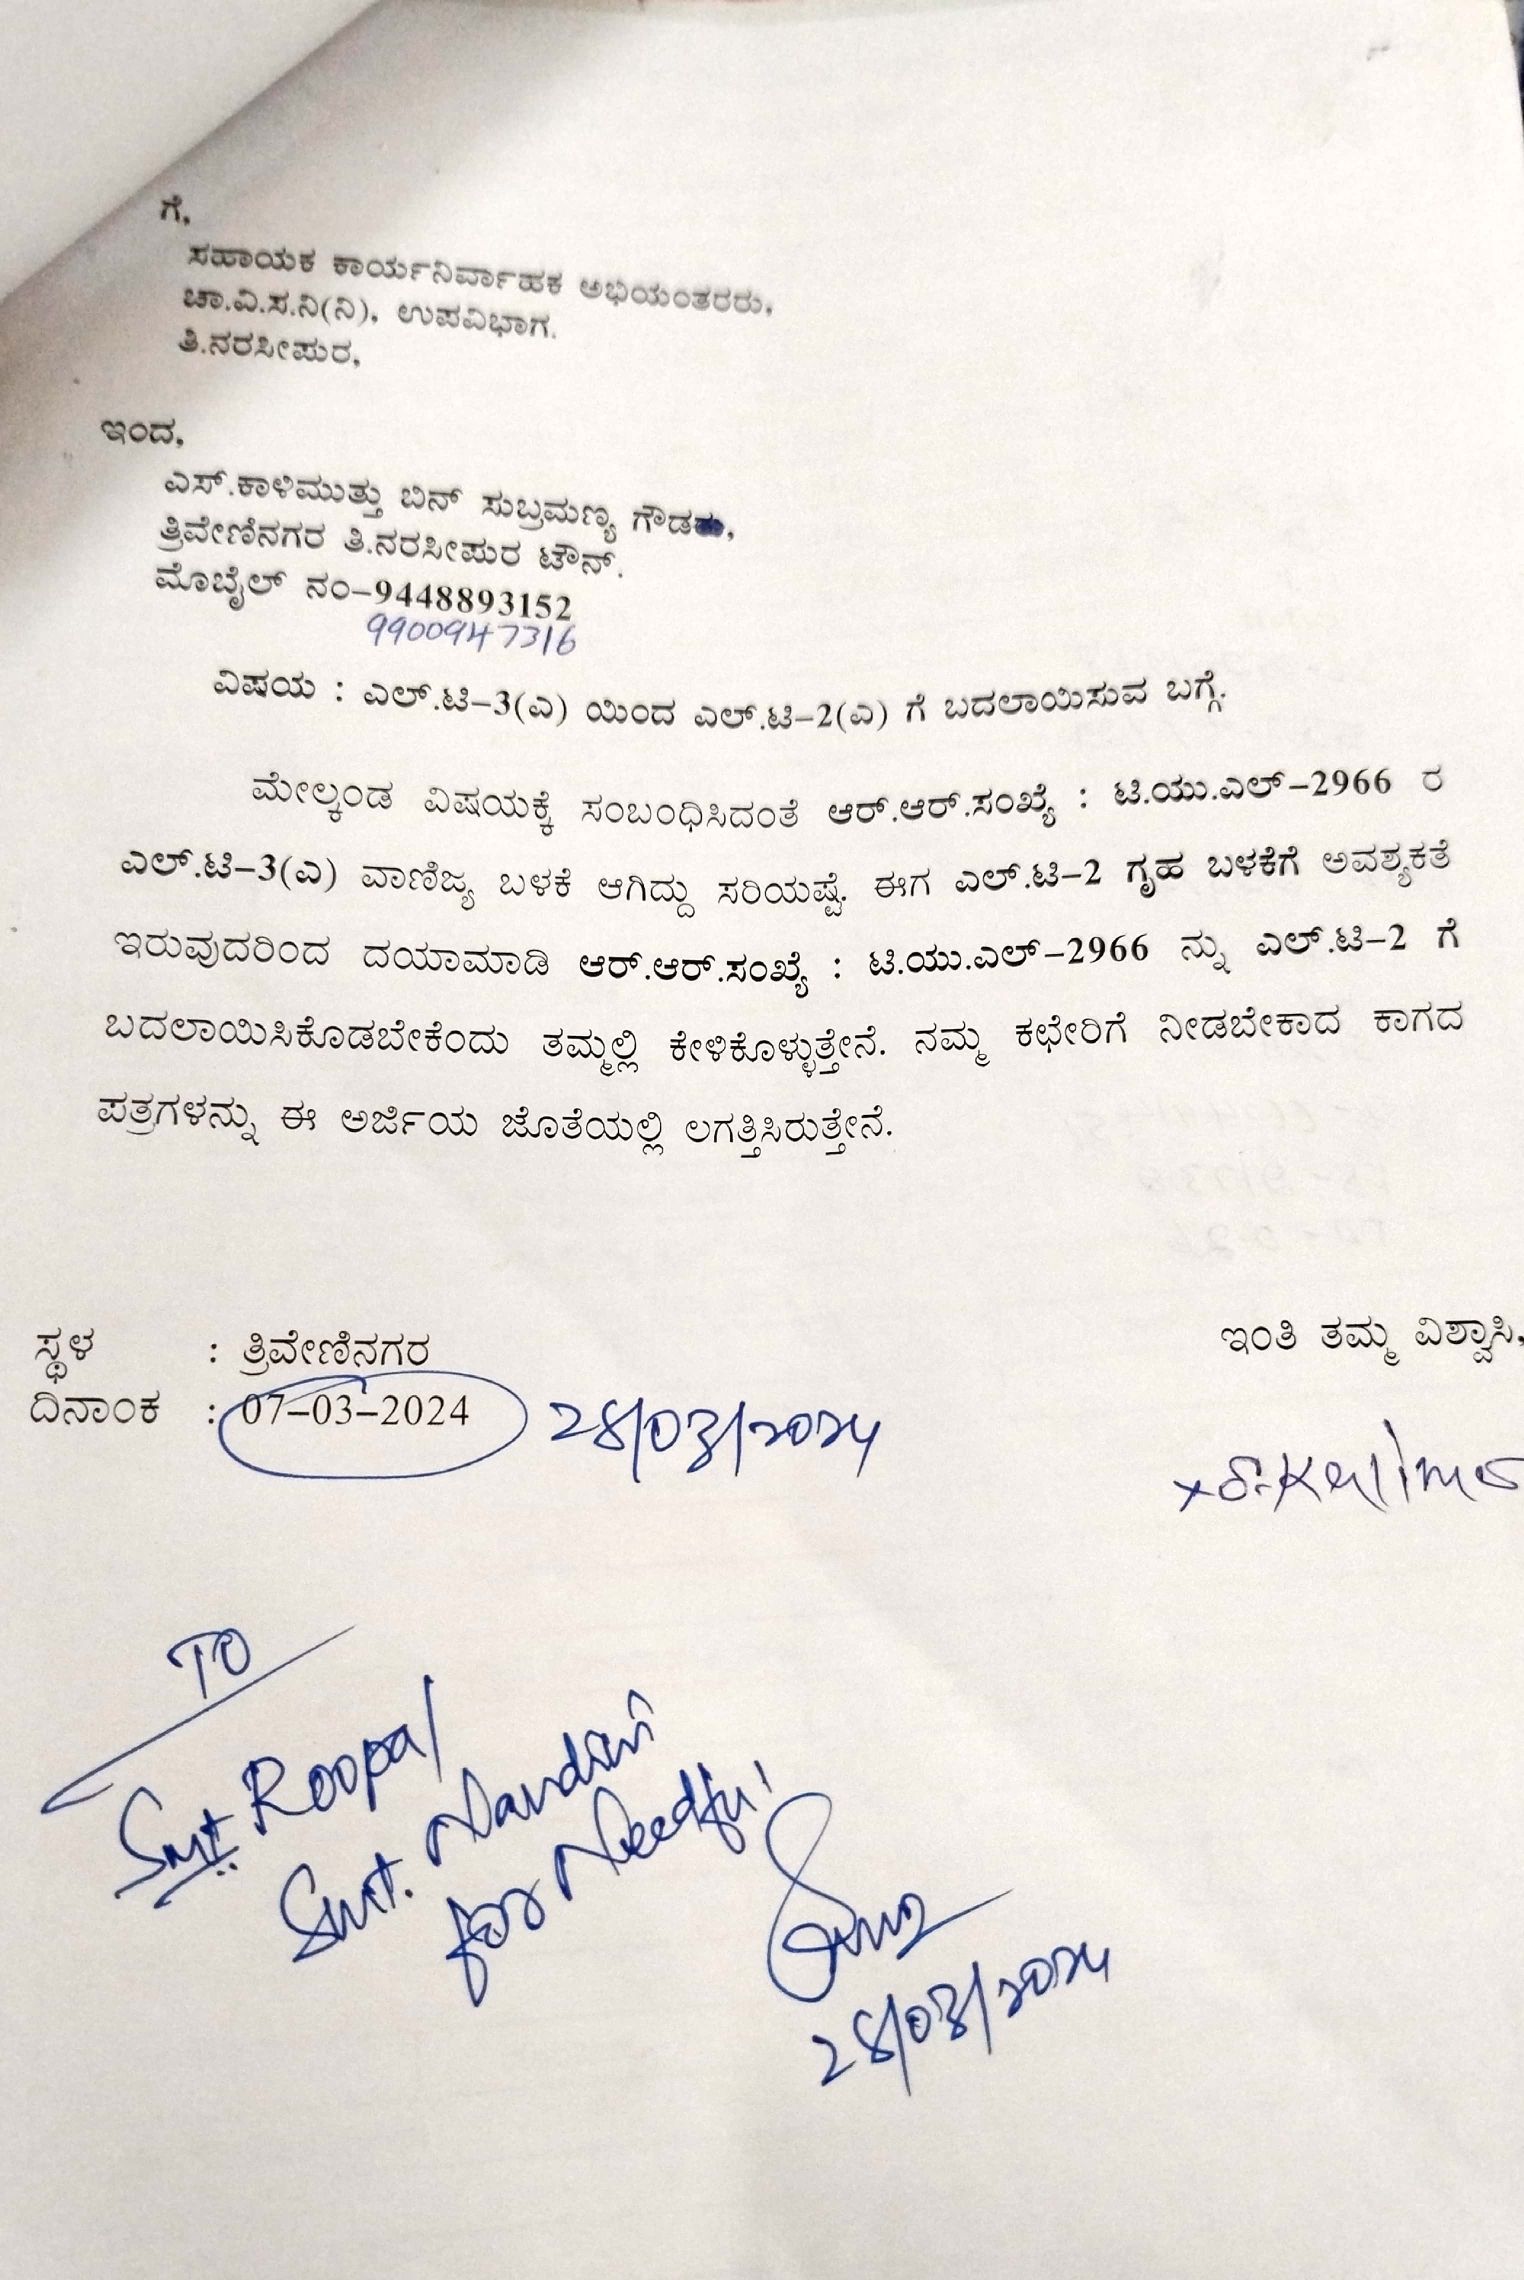 ಗೆ,
ಸಹಾಯಕ ಕಾರ್ಯನಿರ್ವಾಹಕ ಅಭಿಯಂತರರು,
ಚಾ.ವಿ.ಸ.ನಿ(ನಿ), ಉಪವಿಭಾಗ.
ತಿ.ನರಸೀಪುರ,
ಇಂದ,
ಎಸ್.ಕಾಳಿಮುತ್ತು ಬಿನ್ ಸುಬ್ರಮಣ್ಯ ಗೌಡ,
ತ್ರಿವೇಣಿನಗರ ತಿ.ನರಸೀಪುರ ಟೌನ್.
ಮೊಬೈಲ್ ನಂ-9448893152
9900947316
ವಿಷಯ : ಎಲ್.ಟಿ-3(ಎ) ಯಿಂದ ಎಲ್.ಟಿ-2(ಎ) ಗೆ ಬದಲಾಯಿಸುವ ಬಗ್ಗೆ.
ಮೇಲ್ಕಂಡ ವಿಷಯಕ್ಕೆ ಸಂಬಂಧಿಸಿದಂತೆ ಆರ್.ಆರ್.ಸಂಖ್ಯೆ : ಟಿ.ಯು.ಎಲ್-2966 ರ
ಎಲ್.ಟಿ-3(ಎ) ವಾಣಿಜ್ಯ ಬಳಕೆ ಆಗಿದ್ದು ಸರಿಯಷ್ಟೆ. ಈಗ ಎಲ್.ಟಿ-2 ಗೃಹ ಬಳಕೆಗೆ ಅವಶ್ಯಕತೆ
ಇರುವುದರಿಂದ ದಯಾಮಾಡಿ ಆರ್.ಆರ್.ಸಂಖ್ಯೆ : ಟಿ.ಯು.ಎಲ್-2966 ನ್ನು ಎಲ್.ಟಿ-2 ಗೆ
ಬದಲಾಯಿಸಿಕೊಡಬೇಕೆಂದು ತಮ್ಮಲ್ಲಿ ಕೇಳಿಕೊಳ್ಳುತ್ತೇನೆ. ನಮ್ಮ ಕಛೇರಿಗೆ ನೀಡಬೇಕಾದ ಕಾಗದ
ಪತ್ರಗಳನ್ನು ಈ ಅರ್ಜಿಯ ಜೊತೆಯಲ್ಲಿ ಲಗತ್ತಿಸಿರುತ್ತೇನೆ.
ಸ್ಥಳ : ತ್ರಿವೇಣಿನಗರ
ಇಂತಿ ತಮ್ಮ ವಿಶ್ವಾಸಿ,
ದಿನಾಂಕ : 07-03-2024 28/03/2024
TO
Smt Roopa/
Smt. Nandini
for Needful
28/03/2024